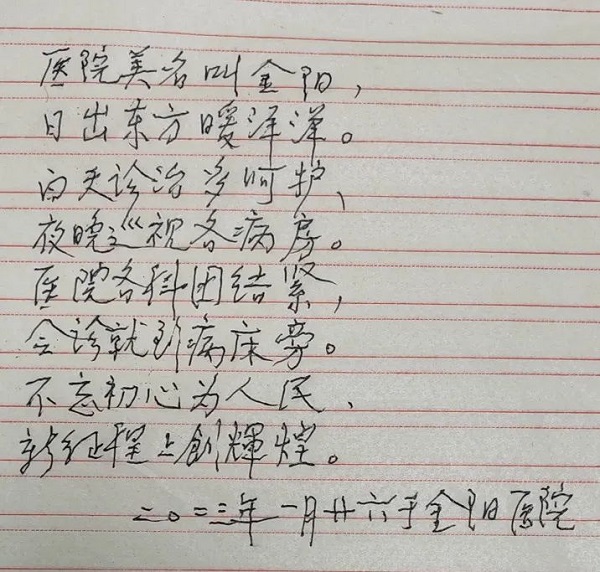 医院美名叫金阳，
日出东方暖洋洋。
白天诊治多呵护、
夜晚巡视各病房。
医院各科团结紧，
会诊就到病床旁。
不忘初心为人民、
新征程上创輝煌。
二〇二三年一月廿六于金阳医院